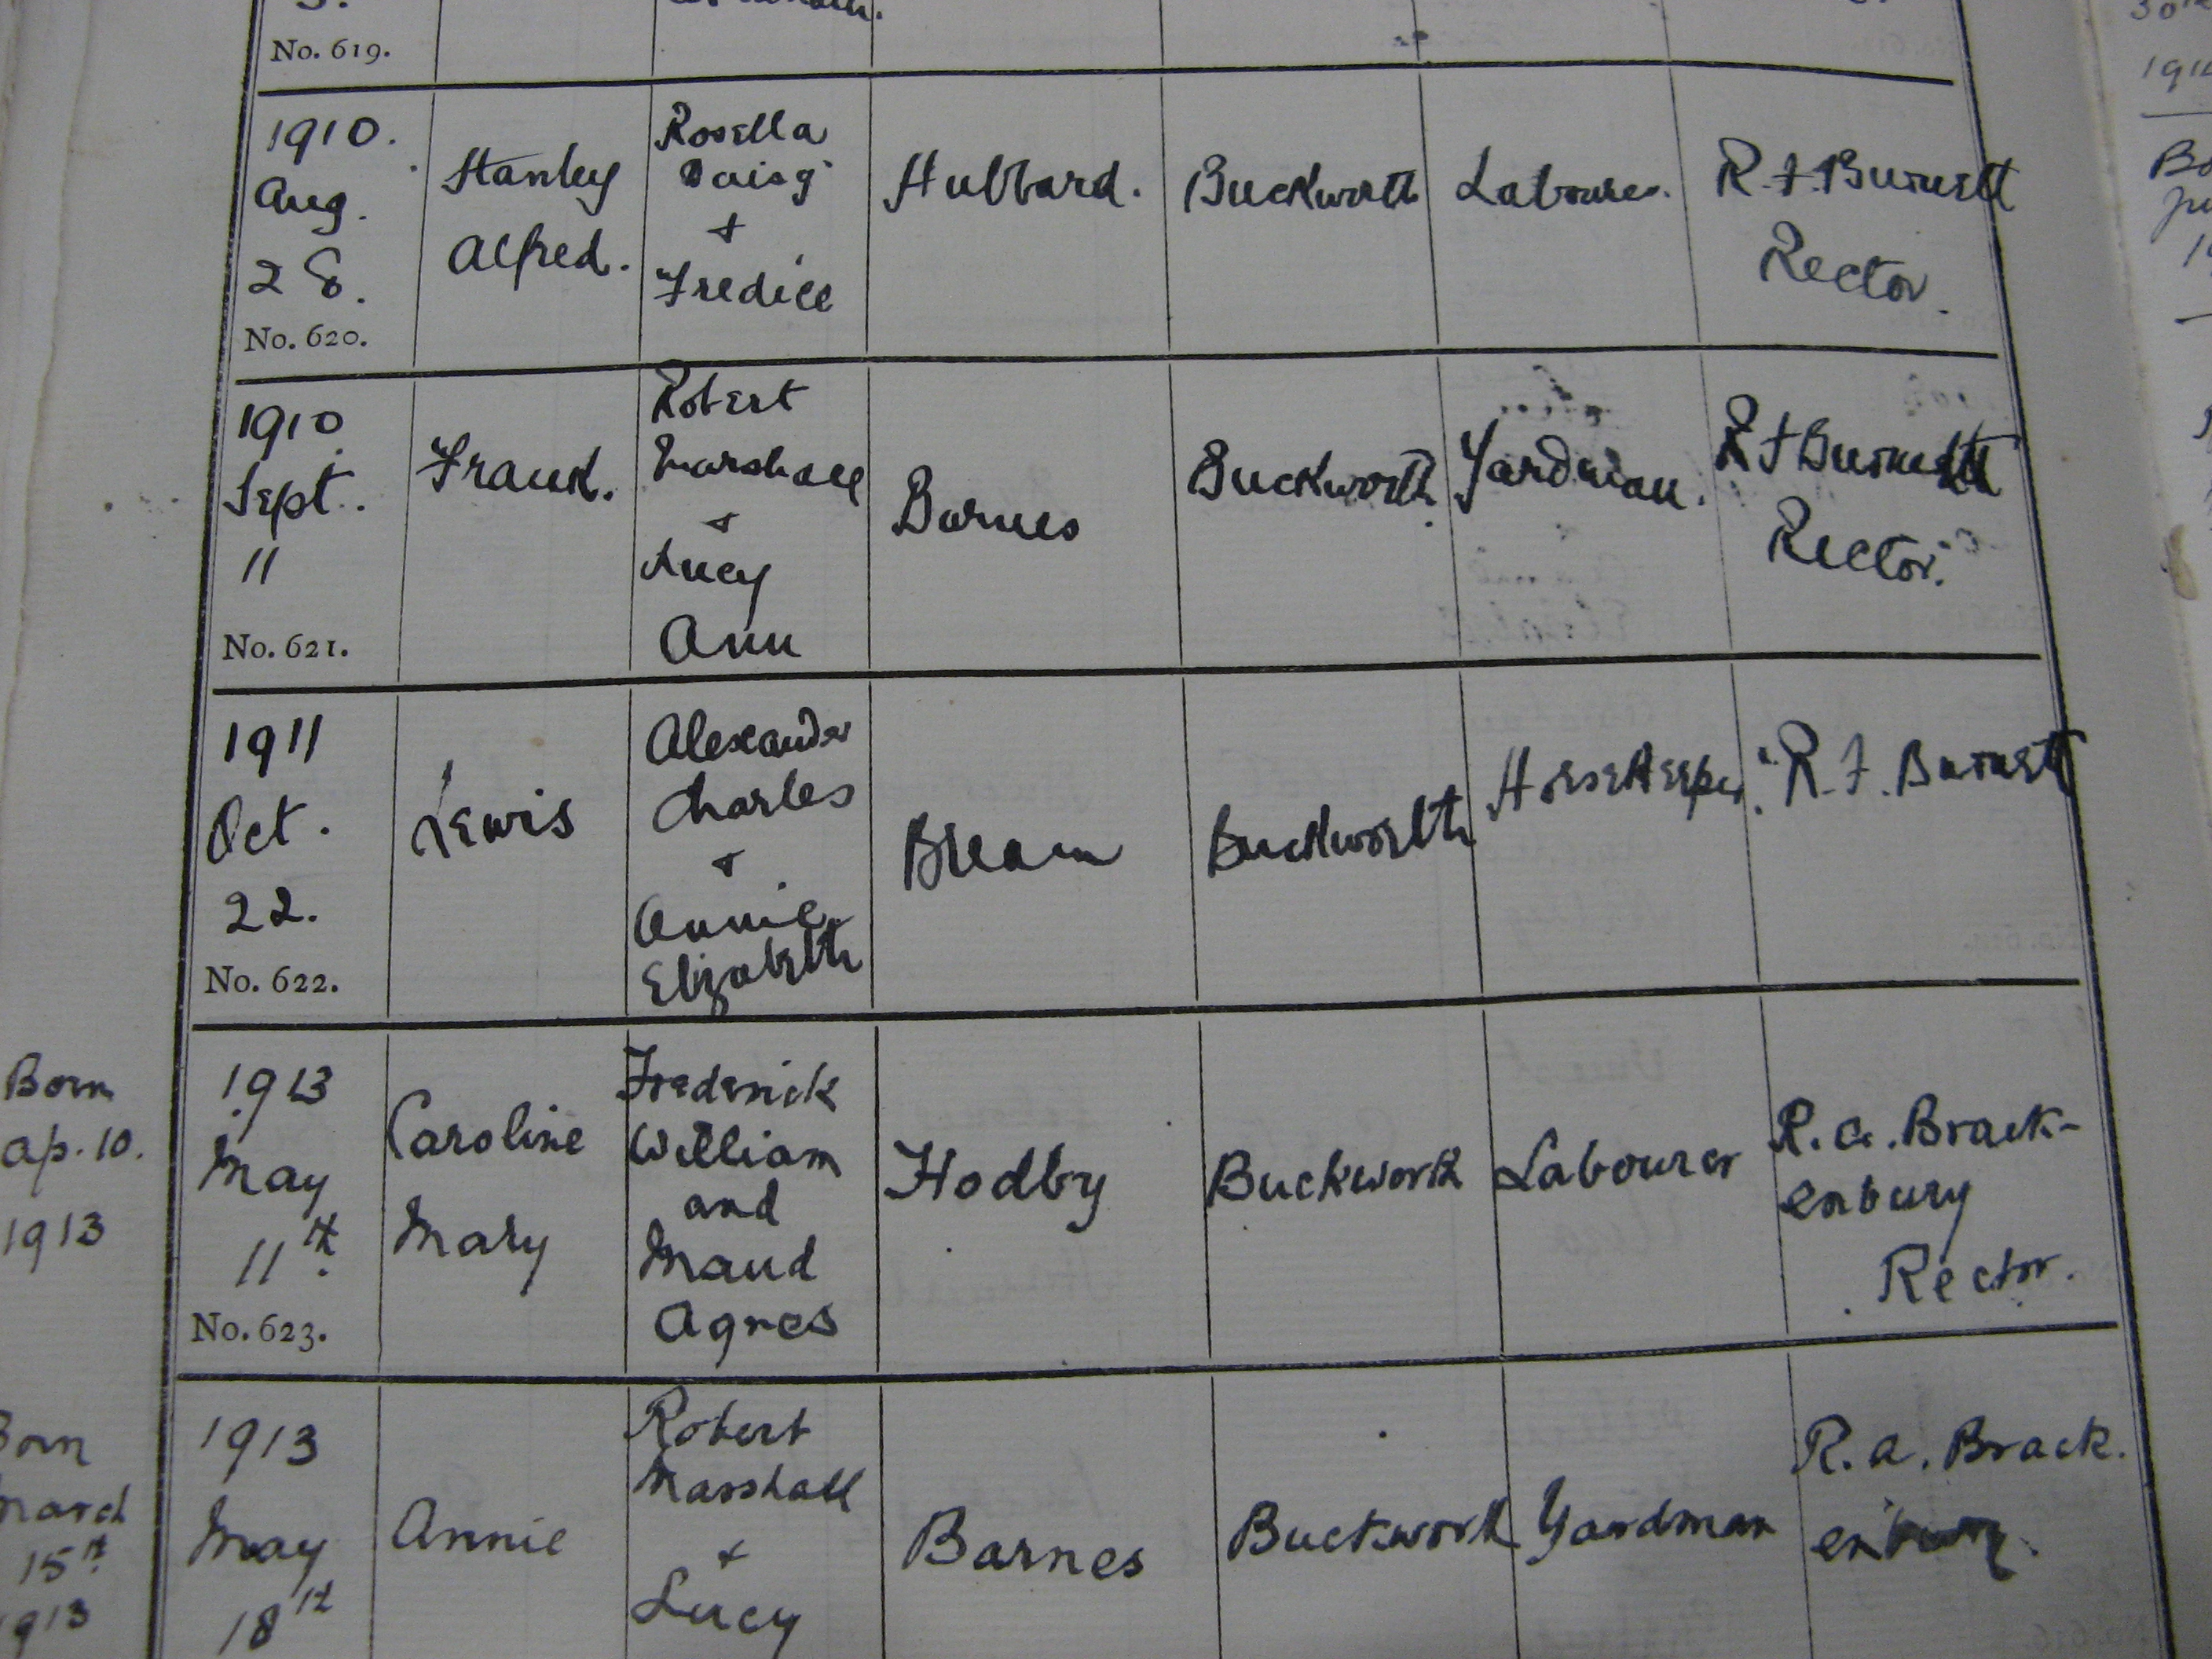 No. 619.
1910.
Aug.
28.
No. 620.
Stanley
Alfred.
Rosella
Daisy
+
Fredice
Hubbard.
Buckworth
Labourer.
R. F. Burnett
Rector.
1910.
Sept.
11
No. 621.
Frank.
Robert
Marshall
+
Lucy
Ann
Barnes
Buckworth.
Yardman.
R F Burnett
Rector.
1911
Oct.
22.
No. 622.
Lewis
Alexander
Charles
+
Annie
Elizabeth
Bream
Buckworth
Horsekeeper.
R. F. Burnett
Born
Ap. 10.
1913
1913
May
11th
No. 623.
Caroline
Mary
Frederick
William
and
Maud
Agnes
Hodby
Buckworth
Labourer
R. A. Brack-
enbury
Rector.
Born
March
15th
1913
1913
May
18th
Annie
Robert
Marshall
+
Lucy
Barnes
Buckworth
Yardman
R. A. Brack.
enbury.